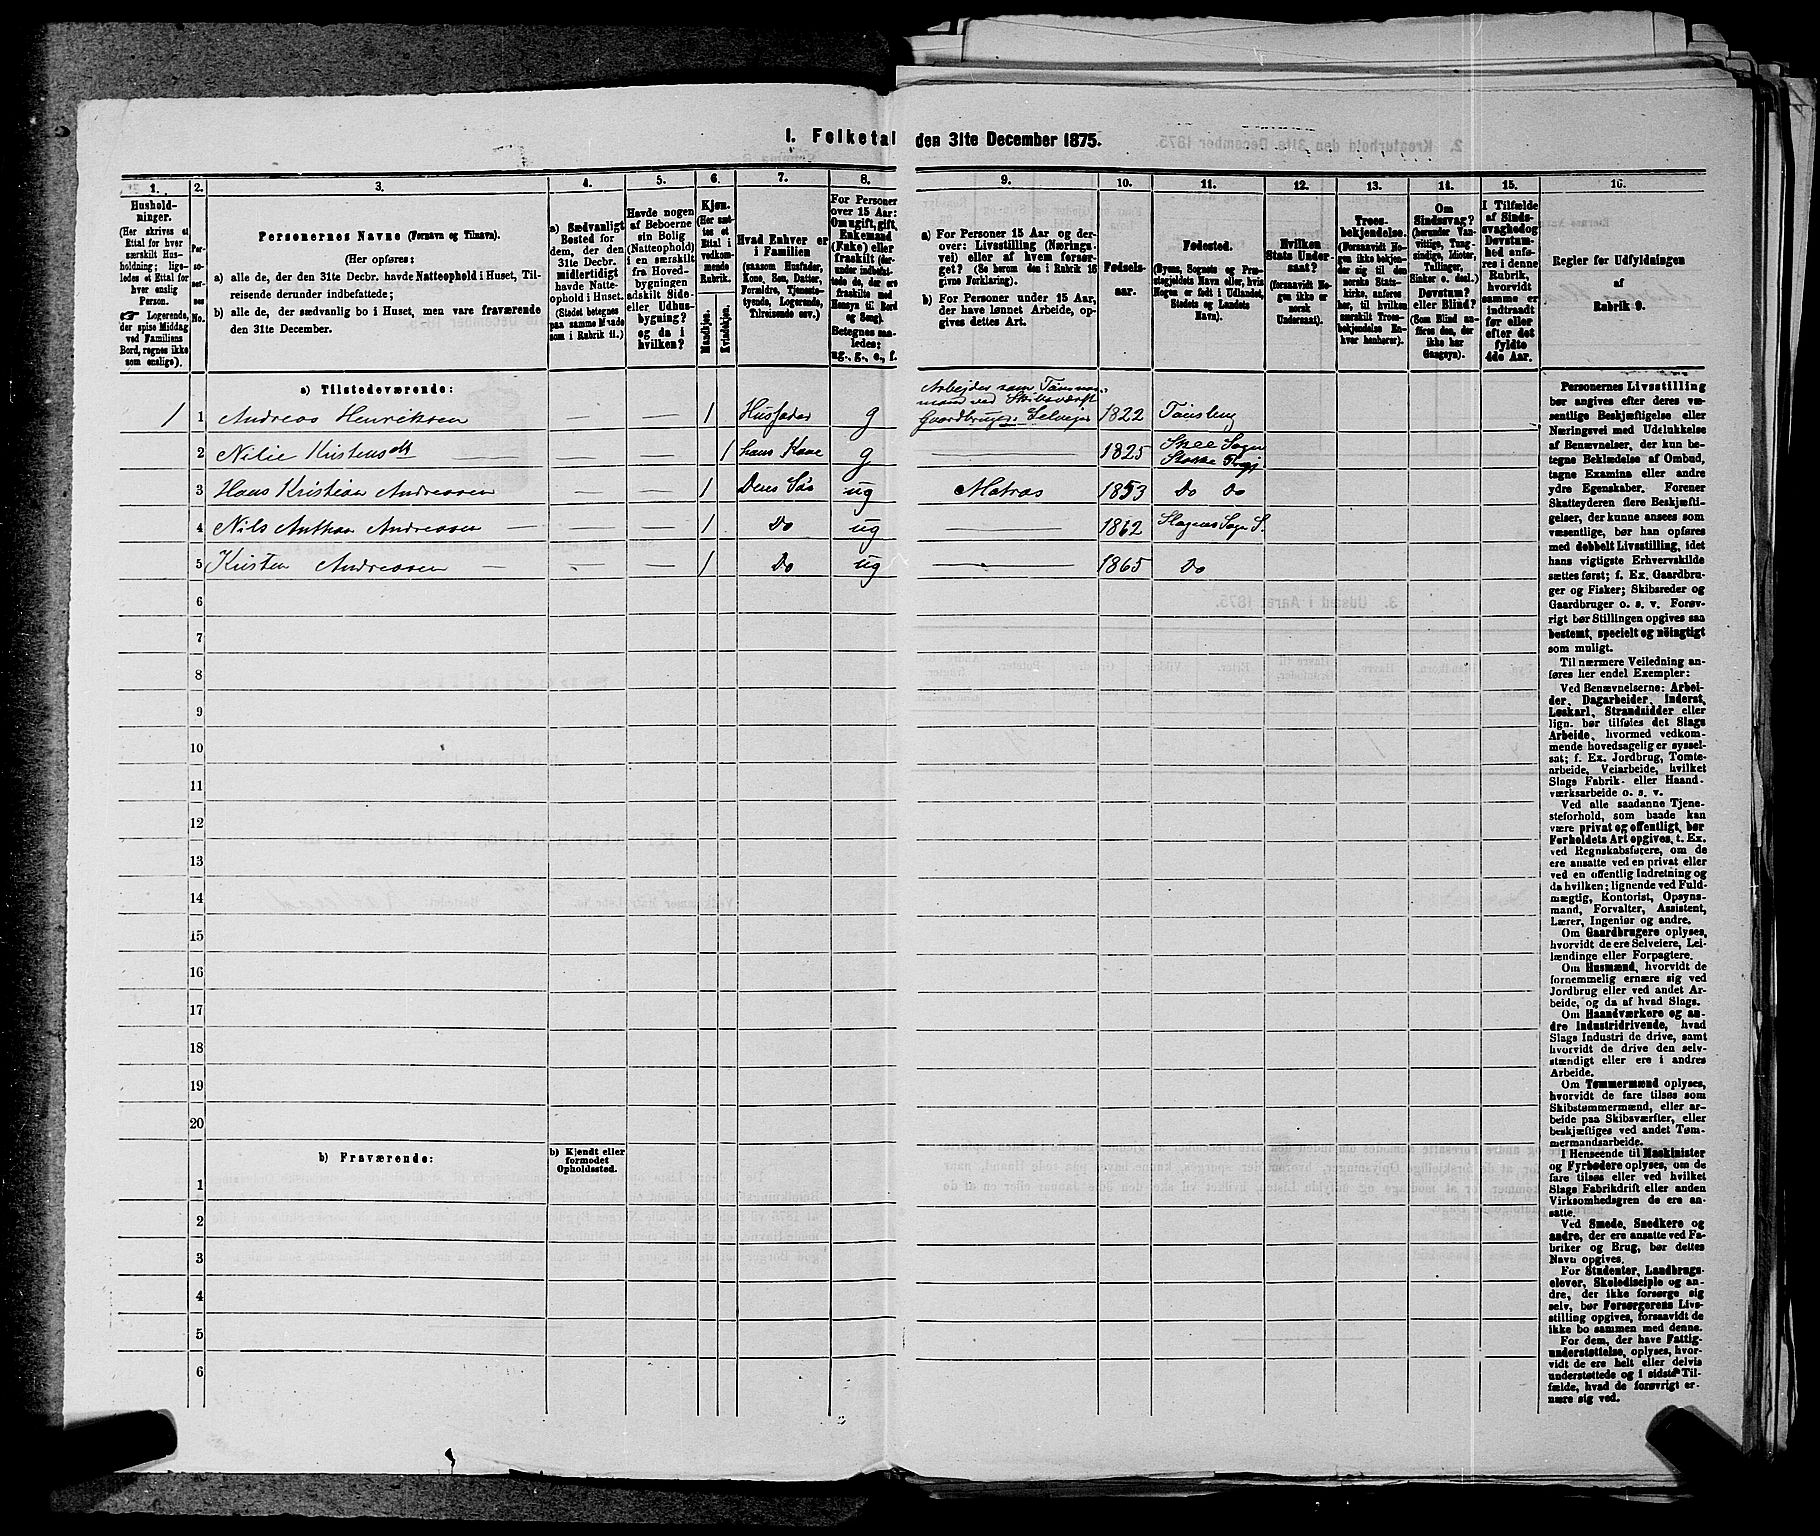 I. Folketal den 31te December 1875.
1. 2. 3. 4. 5. 6. 7. 8. 9. 10. 11. 12. 13. 14. 15. 16.
Hushold-
ninger.
(Her skrives et
Ettal for hver
særskilt Hus-
holdning; lige-
ledes et Ettal for
hver enslig
Person.
☛ Logerende,
der spise Middag
ved Familiens
Bord, regnes ikke
som enslige).
Per-
so-
ner-
nes
No.
Personernes Navne (Fornavn og Tilnavn).
(Her opføres:
a) alle de, der den 31te Decbr. havde Natteophold i Huset, Til-
reisende derunder indbefattede;
b) alle de, der sædvanlig bo i Huset, men vare fraværende
den 31te December.
a) Sædvanligt
Bosted for
dem, der den
31te Decbr.
midlertidigt
havde Natte-
ophold i Huset.
(Stedet betegnes
paa samme Maade
som i Rubrik 11.)
Havde nogen
af Beboerne
sin Bolig
(Natteophold)
i en særskilt
fra Hoved-
bygningen
adskilt Side-
eller Udhus-
bygning?
og da i
hvilken?
Kjøn.
(Her sæt-
tes et
Ettal i
vedkom-
mende
Rubrik.
Mandkjøn.
Kvindekjøn.
Hvad Enhver er
i Familien
(saasom Husfader,
Kone, Søn, Datter,
Forældre, Tjeneste-
tyende, Logerende,
Tilreisende osv.)
For Personer
over 15 Aar:
Om ugift, gift,
Enkemand
(Enke) eller
fraskilt (der-
under indbefat-
tede de, der ere
fraskilte med
Hensyn til Bord
og Seng).
Betegnes saa-
ledes:
ug., g., e., f.
a) For Personer 15 Aar og der-
over: Livsstilling (Nærings-
vei) eller af hvem forsør-
get? (Se herom den i Rubrik 16
givne Forklaring).
b) For Personer under 15 Aar,
der have lønnet Arbeide, op-
gives dettes Art.
Fødsels-
aar.
Fødested.
(Byens, Sognets og Præ-
stegjeldets Navn eller, hvis
Nogen er født i Udlandet,
Stedets og Landets
Navn).
Hvilken
Stats Under-
saat?
(forsaavidt No-
gen ikke er
norsk
Undersaat).
Troes-
bekjendelse.
(Forsaavidt No-
gen ikke bekjen-
der sig til den
norske Stats-
kirke, anføres
her, til hvilken
særskilt Troes-
bekjendelse En-
hver henhører).
Om
Sindssvag?
(herunder Van-
vittige, Tung-
sindige, Idioter,
Tullinger,
Sinker o. desl.)
Døvstum?
eller Blind?
(Som Blind an-
føres den, der
ikke har
Gangsyn).
I Tilfælde
af Sinds-
svaghed og
Døvstum-
hed anfø-
res i denne
Rubrik,
hvorvidt
samme er
indtraadt
før eller
efter det
fyldte
4de Aar.
Regler for Udfyldningen
af
Rubrik 9.
a) Tilstedeværende:
1 1 Andreas Henriksen — — 1 Husfader g Arbejder som Tømmer-
mand ved Skibsværft
Gaardbruger Selvejer 1822 Tønsberg
2 Nilie Kristensdt — — 1 hans Kone g — 1825 Skee Sogn
Stokke Prgj
3 Hans Kristian Andreasen — — 1 Deres Søn ug Matros 1853 Do Do
4 Nils Anthon Andreasen — — — 1 Do ug — 1862 Slagens Sogn S.
5 Kristen Andreasen — — — 1 Do ug — 1865 Do
6
7
8
9
10
11
12
13
14
15
16
17
18
19
20
b) Fraværende:
b) Kjendt eller
formodet
Opholdssted.
1
2
3
4
5
6
Personernes Livsstilling
bør angives efter deres væ-
sentlige Beskjæftigelse eller
Næringsvei med Udelukkelse
af Benævnelser, der kun be-
tegne Beklædelse af Ombud,
tagne Examina eller andre
ydre Egenskaber. Forener
Skatteyderen flere Beskjæfti-
gelser, der kunne ansees som
væsentlige, bør han opføres
med dobbelt Livsstilling, idet
hans vigtigste Erhvervskilde
sættes først; f. Ex. Gaardbru-
ger og Fisker; Skibsreder og
Gaardbruger o. s. v. Forøv-
rigt bør Stillingen opgives saa
bestemt, specielt og nøiagtigt
som muligt.
Til nærmere Veiledning an-
føres her endel Exempler:
Ved Benævnelserne: Arbei-
der, Dagarbeider, Inderst,
Løskarl, Strandsidder eller
lign. bør tilføies det Slags
Arbeide, hvormed vedkom-
mende hovedsagelig er syssel-
sat; f. Ex. Jordbrug, Tomte-
arbeide, Veiarbeide, hvilket
Slags Fabrik- eller Haand-
værksarbeide o. s. v.
Ved alle saadanne Tjene-
steforhold, som baade kan
være privat og offentligt, bør
Forholdets Art opgives, t. Ex.
ved Regnskabsførere, om de
ere ansatte ved en privat eller
ved en offentlig Indretning og
da hvilken; lignende ved Fuld-
mægtig, Kontorist, Opsyns-
mand, Forvalter, Assistent,
Lærer, Ingeniør og andre.
Om Gaardbrugere oplyses,
hvorvidt de ere Selveiere, Lei-
lændinge eller Forpagtere.
Om Husmænd, hvorvidt de
fornemmelig ernære sig ved
Jordbrug eller ved andet Ar-
beide, og da af hvad Slags.
Om Haandværkere og an-
dre Industridrivende, hvad
Slags Industri de drive, samt
hvorvidt de drive den selv-
stændigt eller ere i andres
Arbeide.
Om Tømmermænd oplyses,
hvorvidt de fare tilsøs som
Skibstømmermænd, eller ar-
beide paa Skibsværfter, eller
beskjæftiges ved andet Tøm-
mermandsarbeide.
I Henseende til Maskinister
og Fyrbødere oplyses, om de
fare tilsøs eller ved hvilket
Slags Fabrikdrift eller anden
Virksomhedsgren de ere an-
satte.
Ved Smede, Snedkere og
andre, der ere ansatte ved Fa-
briker og Brug, bør dettes
Navn opgives.
For Studenter, Landbrugs-
elever, Skoledisciple og an-
dre, der ikke forsørge sig
selv, bør Forsørgerens Livs-
stilling opgives, forsaavidt de
ikke bo sammen med denne.
For dem, der have Fattig-
understøttelse, oplyses, hvor-
vidt de ere helt eller delvis
understøttede og i sidste Til-
fælde, hvad de forøvrigt er-
nære sig ved.